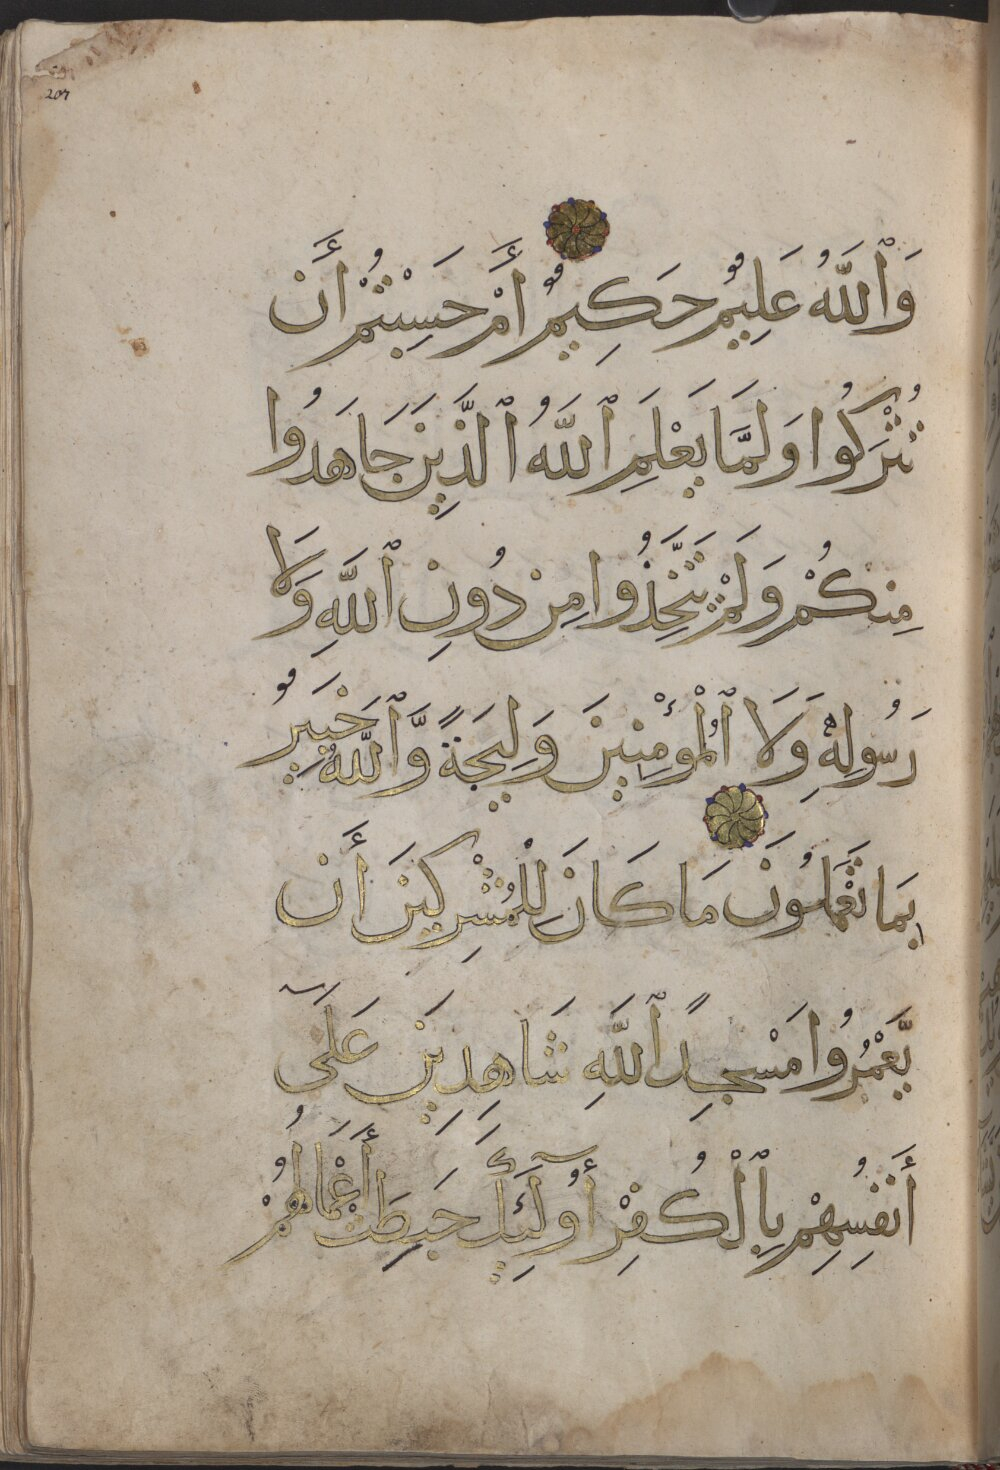 207
وَٱللَّهُ عَلِيمٌ حَكِيمٌ أَمْ حَسِبْتُمْ أَن
تُتْرَكُوا وَلَمَّا يَعْلَمِ ٱللَّهُ ٱلَّذِينَ جَاهَدُوا
مِنكُمْ وَلَمْ يَتَّخِذُوا مِن دُونِ ٱللَّهِ وَلَا
رَسُولِهِ وَلَا ٱلْمُؤْمِنِينَ وَلِيجَةً وَّٱللَّهُ خَبِيرٌ
بِمَا تَعْمَلُونَ مَا كَانَ لِلْمُشْرِكِينَ أَن
يَّعْمُرُوا مَسْجِدَ ٱللَّهِ شَاهِدِينَ عَلَىٰٓ
أَنفُسِهِمْ بِٱلْكُفْرِ أُولَٓئِكَ حَبِطَتْ أَعْمَالُهُمْ